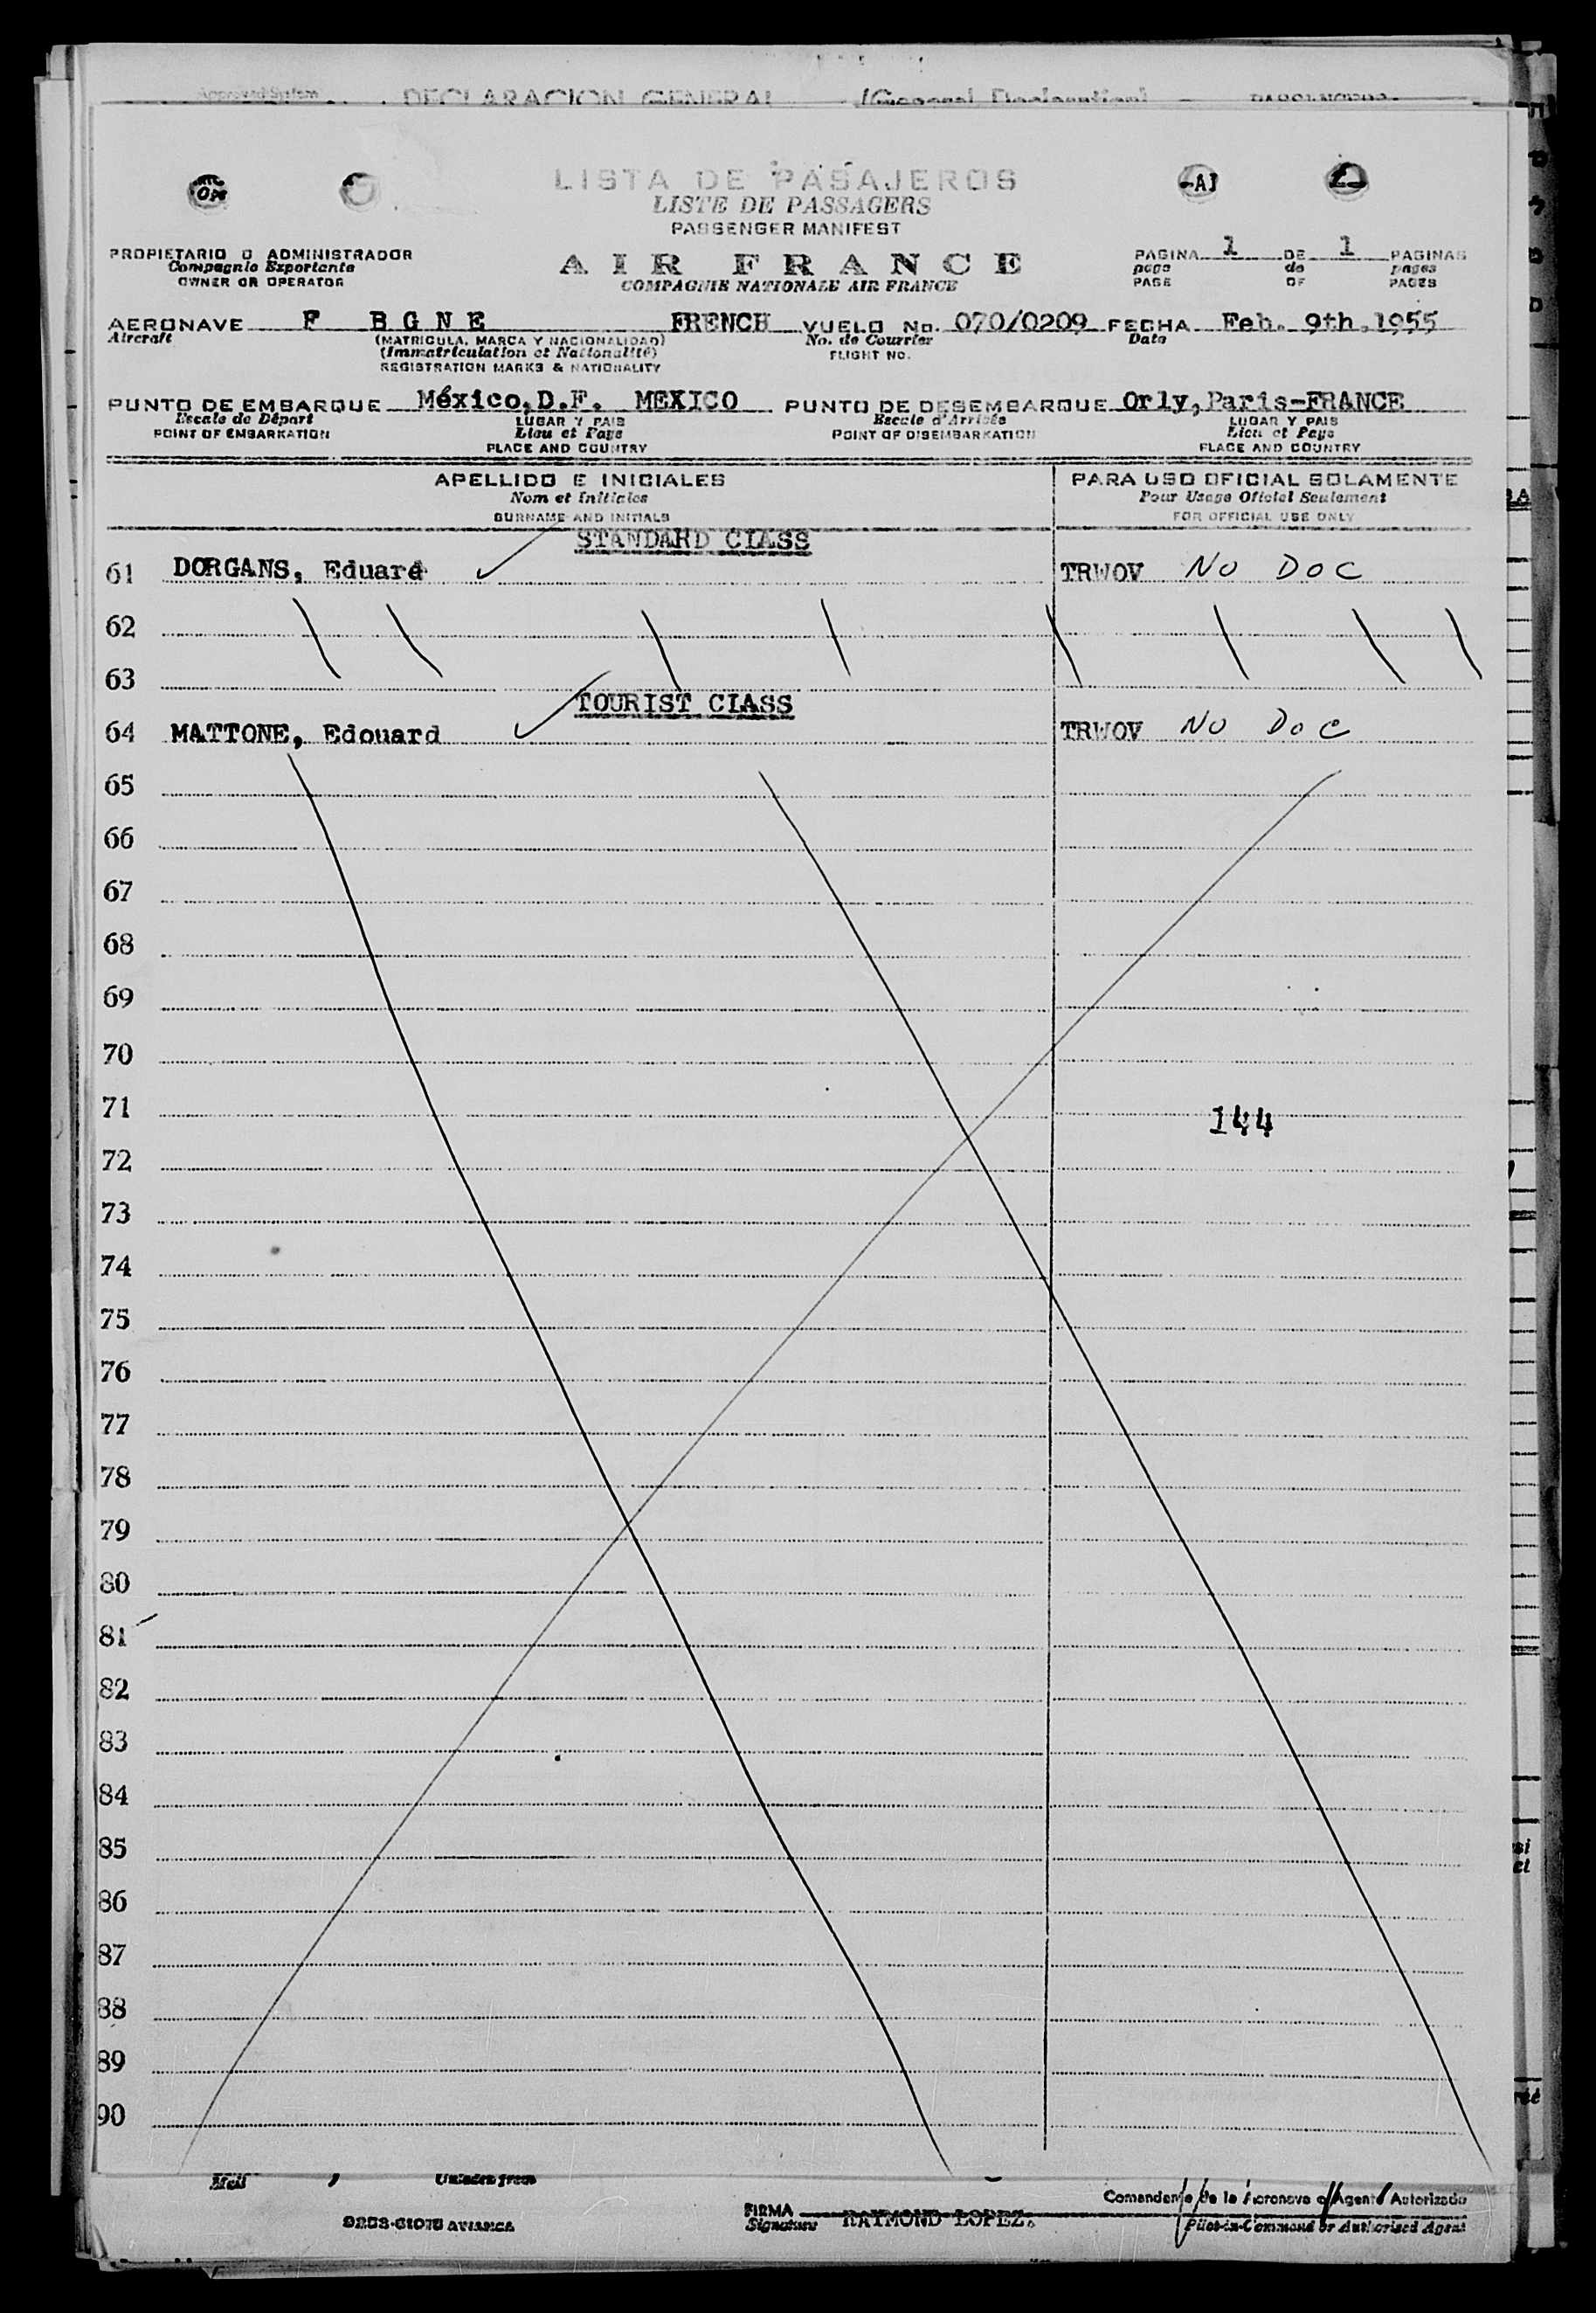 Approved System DECLARACION GENERAL (General Declaration)
LISTA DE PASAJEROS
LISTE DE PASSAGERS
PASSENGER MANIFEST
PROPIETARIO O ADMINISTRADOR
Compagnie Exportante
OWNER OR OPERATOR
AIR FRANCE
COMPAGNIE NATIONALE AIR FRANCE
PAGINA 1 DE 1 PAGINAS
page de pages
PAGE OF PAGES
AERONAVE F BGNE FRENCH VUELO No. 070/0209 FECHA Feb. 9th.1955
Aircraft (MATRICULA, MARCA Y NACIONALIDAD) No. de Courrier Date
(Immatriculation et Nationalité) FLIGHT NO.
REGISTRATION MARKS & NATIONALITY
PUNTO DE EMBARQUE México,D.F. MEXICO PUNTO DE DESEMBARQUE Orly,Paris-FRANCE
Escale de Départ LUGAR Y PAIS Escale d'Arrivée LUGAR Y PAIS
POINT OF EMBARKATION Lieu et Pays POINT OF DISEMBARKATION Lieu et Pays
PLACE AND COUNTRY PLACE AND COUNTRY
APELLIDO E INICIALES PARA USO OFICIAL SOLAMENTE
Nom et Initiales Pour Usage Oficiel Seulement
SURNAME AND INITIALS FOR OFFICIAL USE ONLY
STANDARD CLASS
61 DORGANS, Eduard TRWOV NO DOC
62
63
TOURIST CLASS
64 MATTONE, Edouard TRWOV NO DOC
65
66
67
68
69
70
71 144
72
73
74
75
76
77
78
79
80
81
82
83
84
85
86
87
88
89
90
Mail Unladen from
FIRMA RAYMOND LOPEZ. Comandante de la Aeronave o Agente Autorizado
Signature Pilot-in-Command or Authorised Agent
AVIANCA